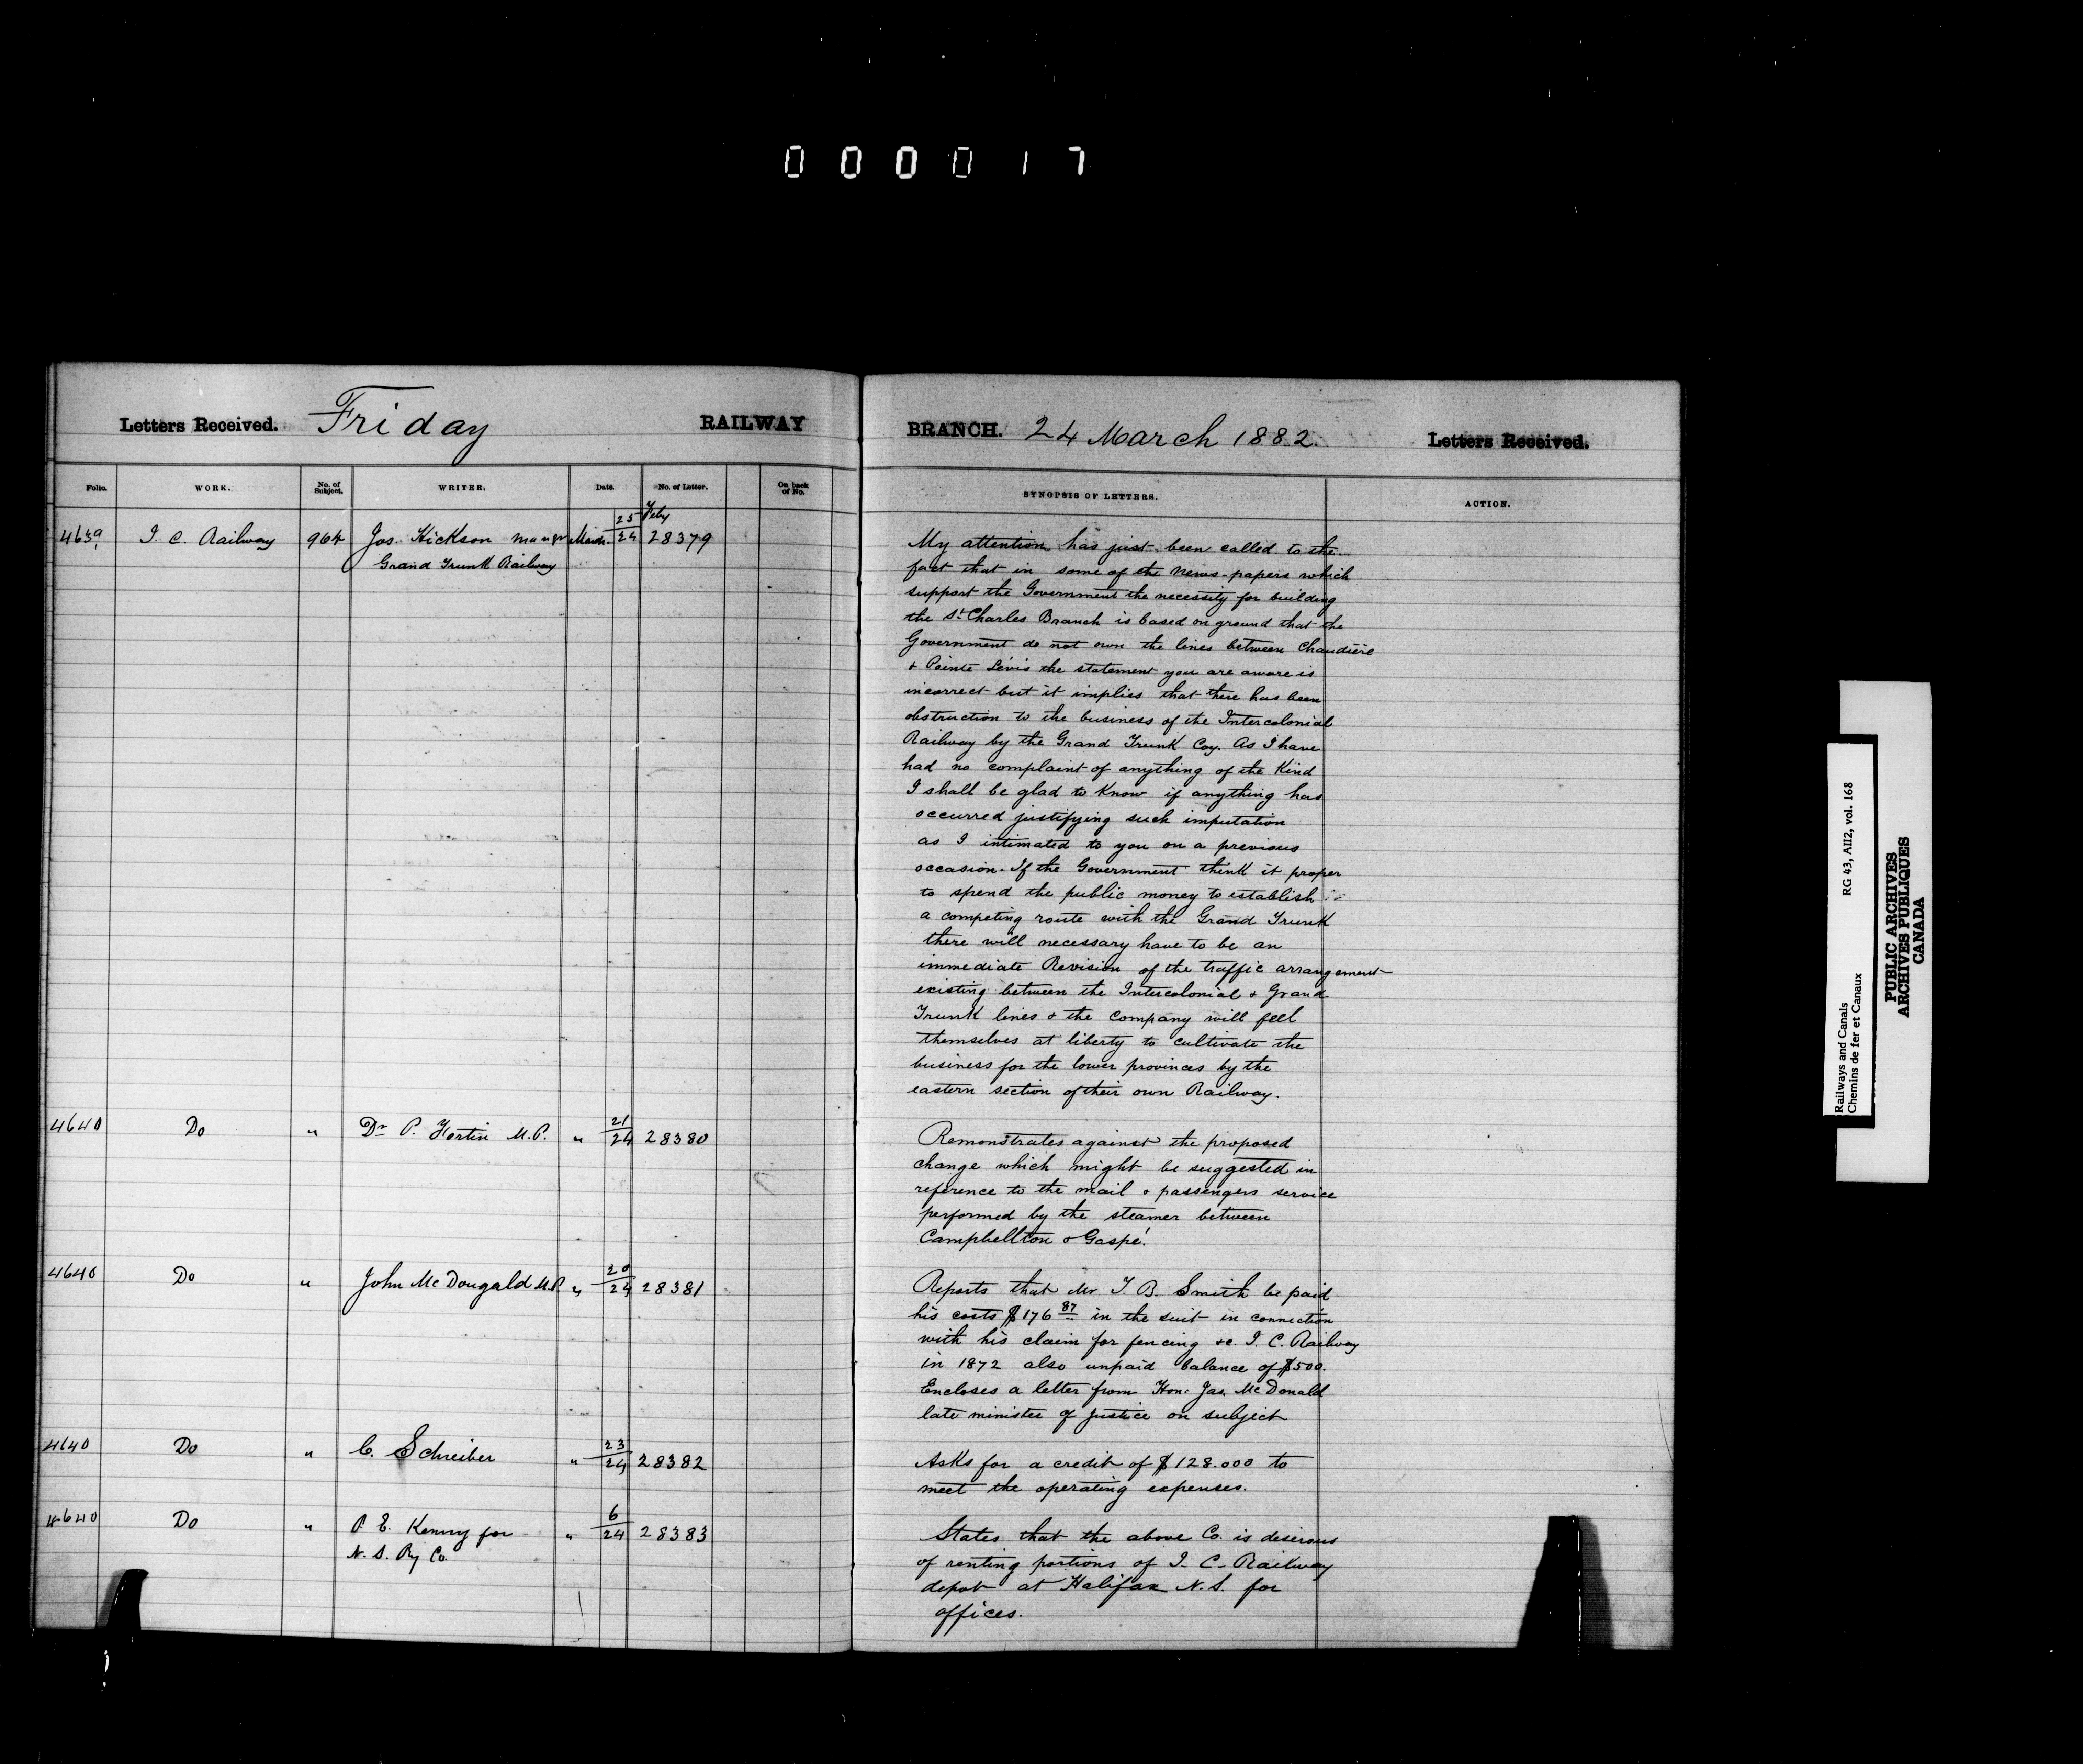 000017
Letters Received. Friday RAILWAY
BRANCH. 24 March 1882. Letters Received.
Folio. WORK. No. of Subject. WRITER. Date. No. of Letter. On back of No.
SYNOPSIS OF LETTERS. ACTION.
4639 I. C. Railway 964 Jas. Hickson Mangr March 25 Feby / 24 28379
Grand Trunk Railway
My attention has just been called to the
fact that in some of the news-papers which
support the Government the necessity for building
the St Charles Branch is based on ground that the
Government do not own the lines between Chaudière
& Pointe Lévis the statement you are aware is
incorrect but it implies that there has been
obstruction to the business of the Intercolonial
Railway by the Grand Trunk Coy. As I have
had no complaint of anything of the Kind
I shall be glad to Know if anything has
occurred justifying such imputation
as I intimated to you on a previous
occasion. If the Government think it proper
to spend the public money to establish
a competing route with the Grand Trunk
there will necessary have to be an
immediate Revision of the traffic arrangement
existing between the Intercolonial & Grand
Trunk lines & the Company will feel
themselves at liberty to cultivate the
business for the lower provinces by the
eastern section of their own Railway.
4640 Do " Dr P. Fortin M.P. " 21/24 28380
Remonstrates against the proposed
change which might be suggested in
reference to the mail & passengers service
performed by the steamer between
Campbellton & Gaspé.
4640 Do " John McDougald M.P. " 20/24 28381
Reports that Mr T. B. Smith be paid
his costs $176 87 in the suit in connection
with his claim for fencing &c. I. C. Railway
in 1872 also unpaid balance of $500.
Encloses a letter from Hon. Jas. McDonald
late minister of Justice on subject
4640 Do " C. Schreiber " 23/24 28382
Asks for a credit of $128.000 to
meet the operating expenses.
4640 Do " P. E. Kenny for " 6/24 28383
N. S. Ry Co.
States that the above Co. is desirous
of renting portions of I. C. Railway
depot at Halifax N.S. for
offices.
Railways and Canals RG 43, AII2, vol. 168
Chemins de fer et Canaux
PUBLIC ARCHIVES
ARCHIVES PUBLIQUES
CANADA